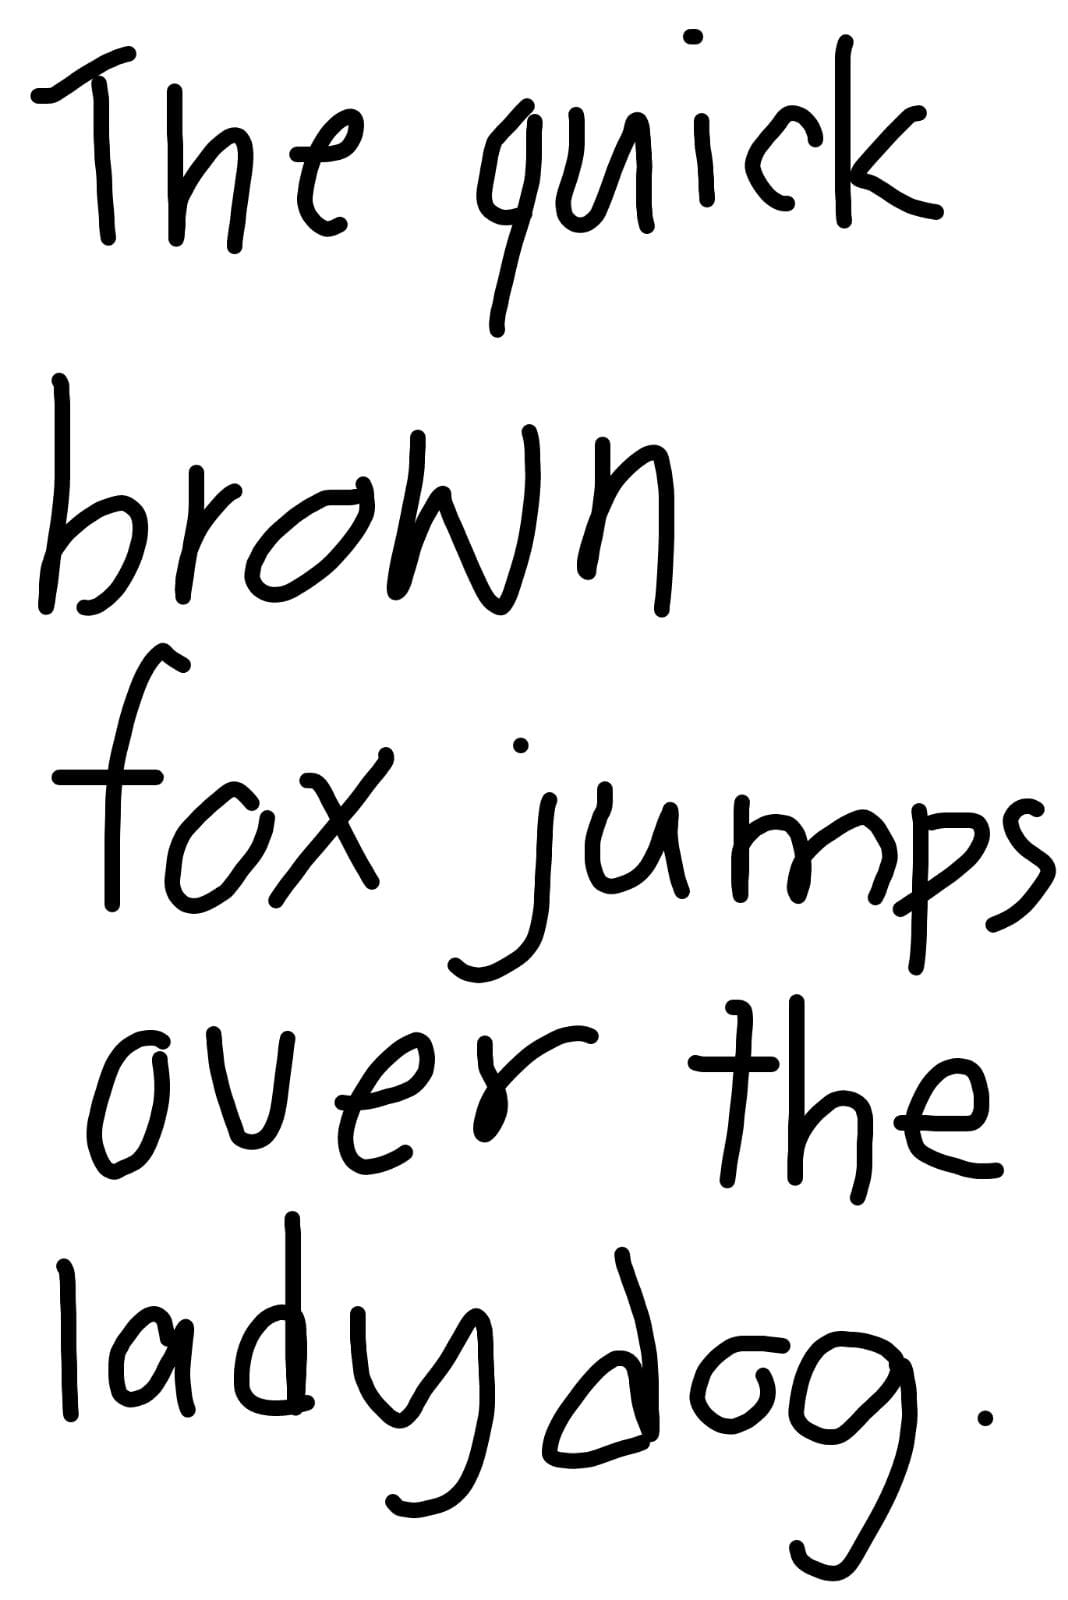 The quick
brown
fox jumps
over the
lady dog.